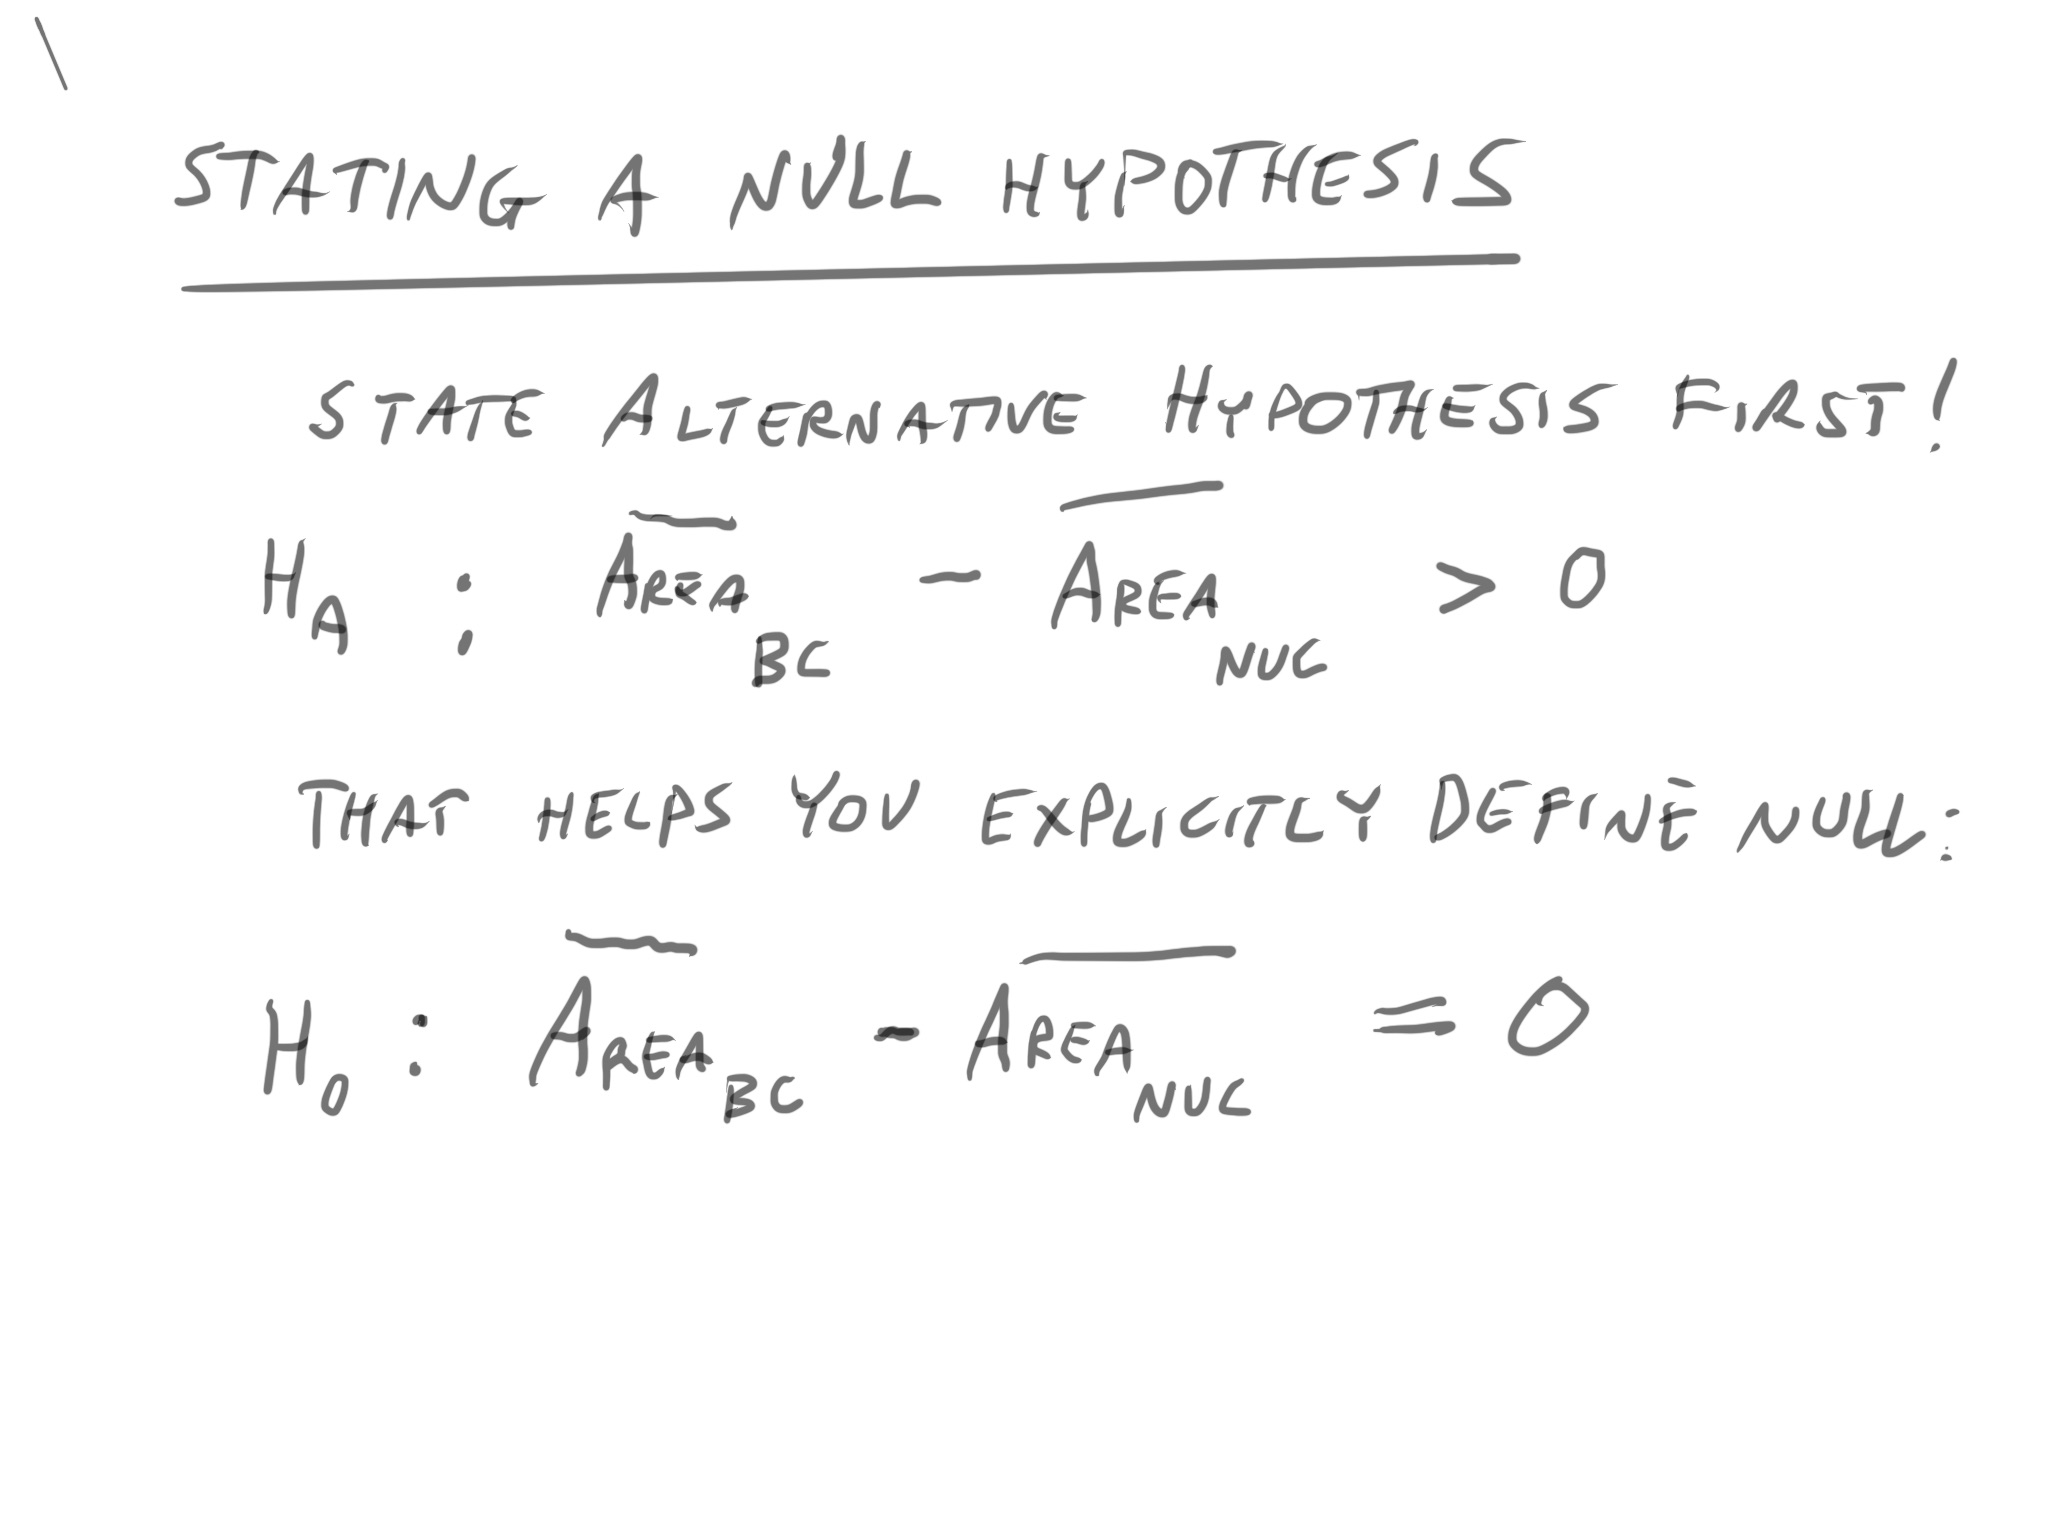 STATING A NULL HYPOTHESIS
STATE ALTERNATIVE HYPOTHESIS FIRST!
H_A : \overline{AREA}_{BC} - \overline{AREA}_{NUC} > 0
THAT HELPS YOU EXPLICITLY DEFINE NULL:
H_0 : \overline{AREA}_{BC} - \overline{AREA}_{NUC} = 0